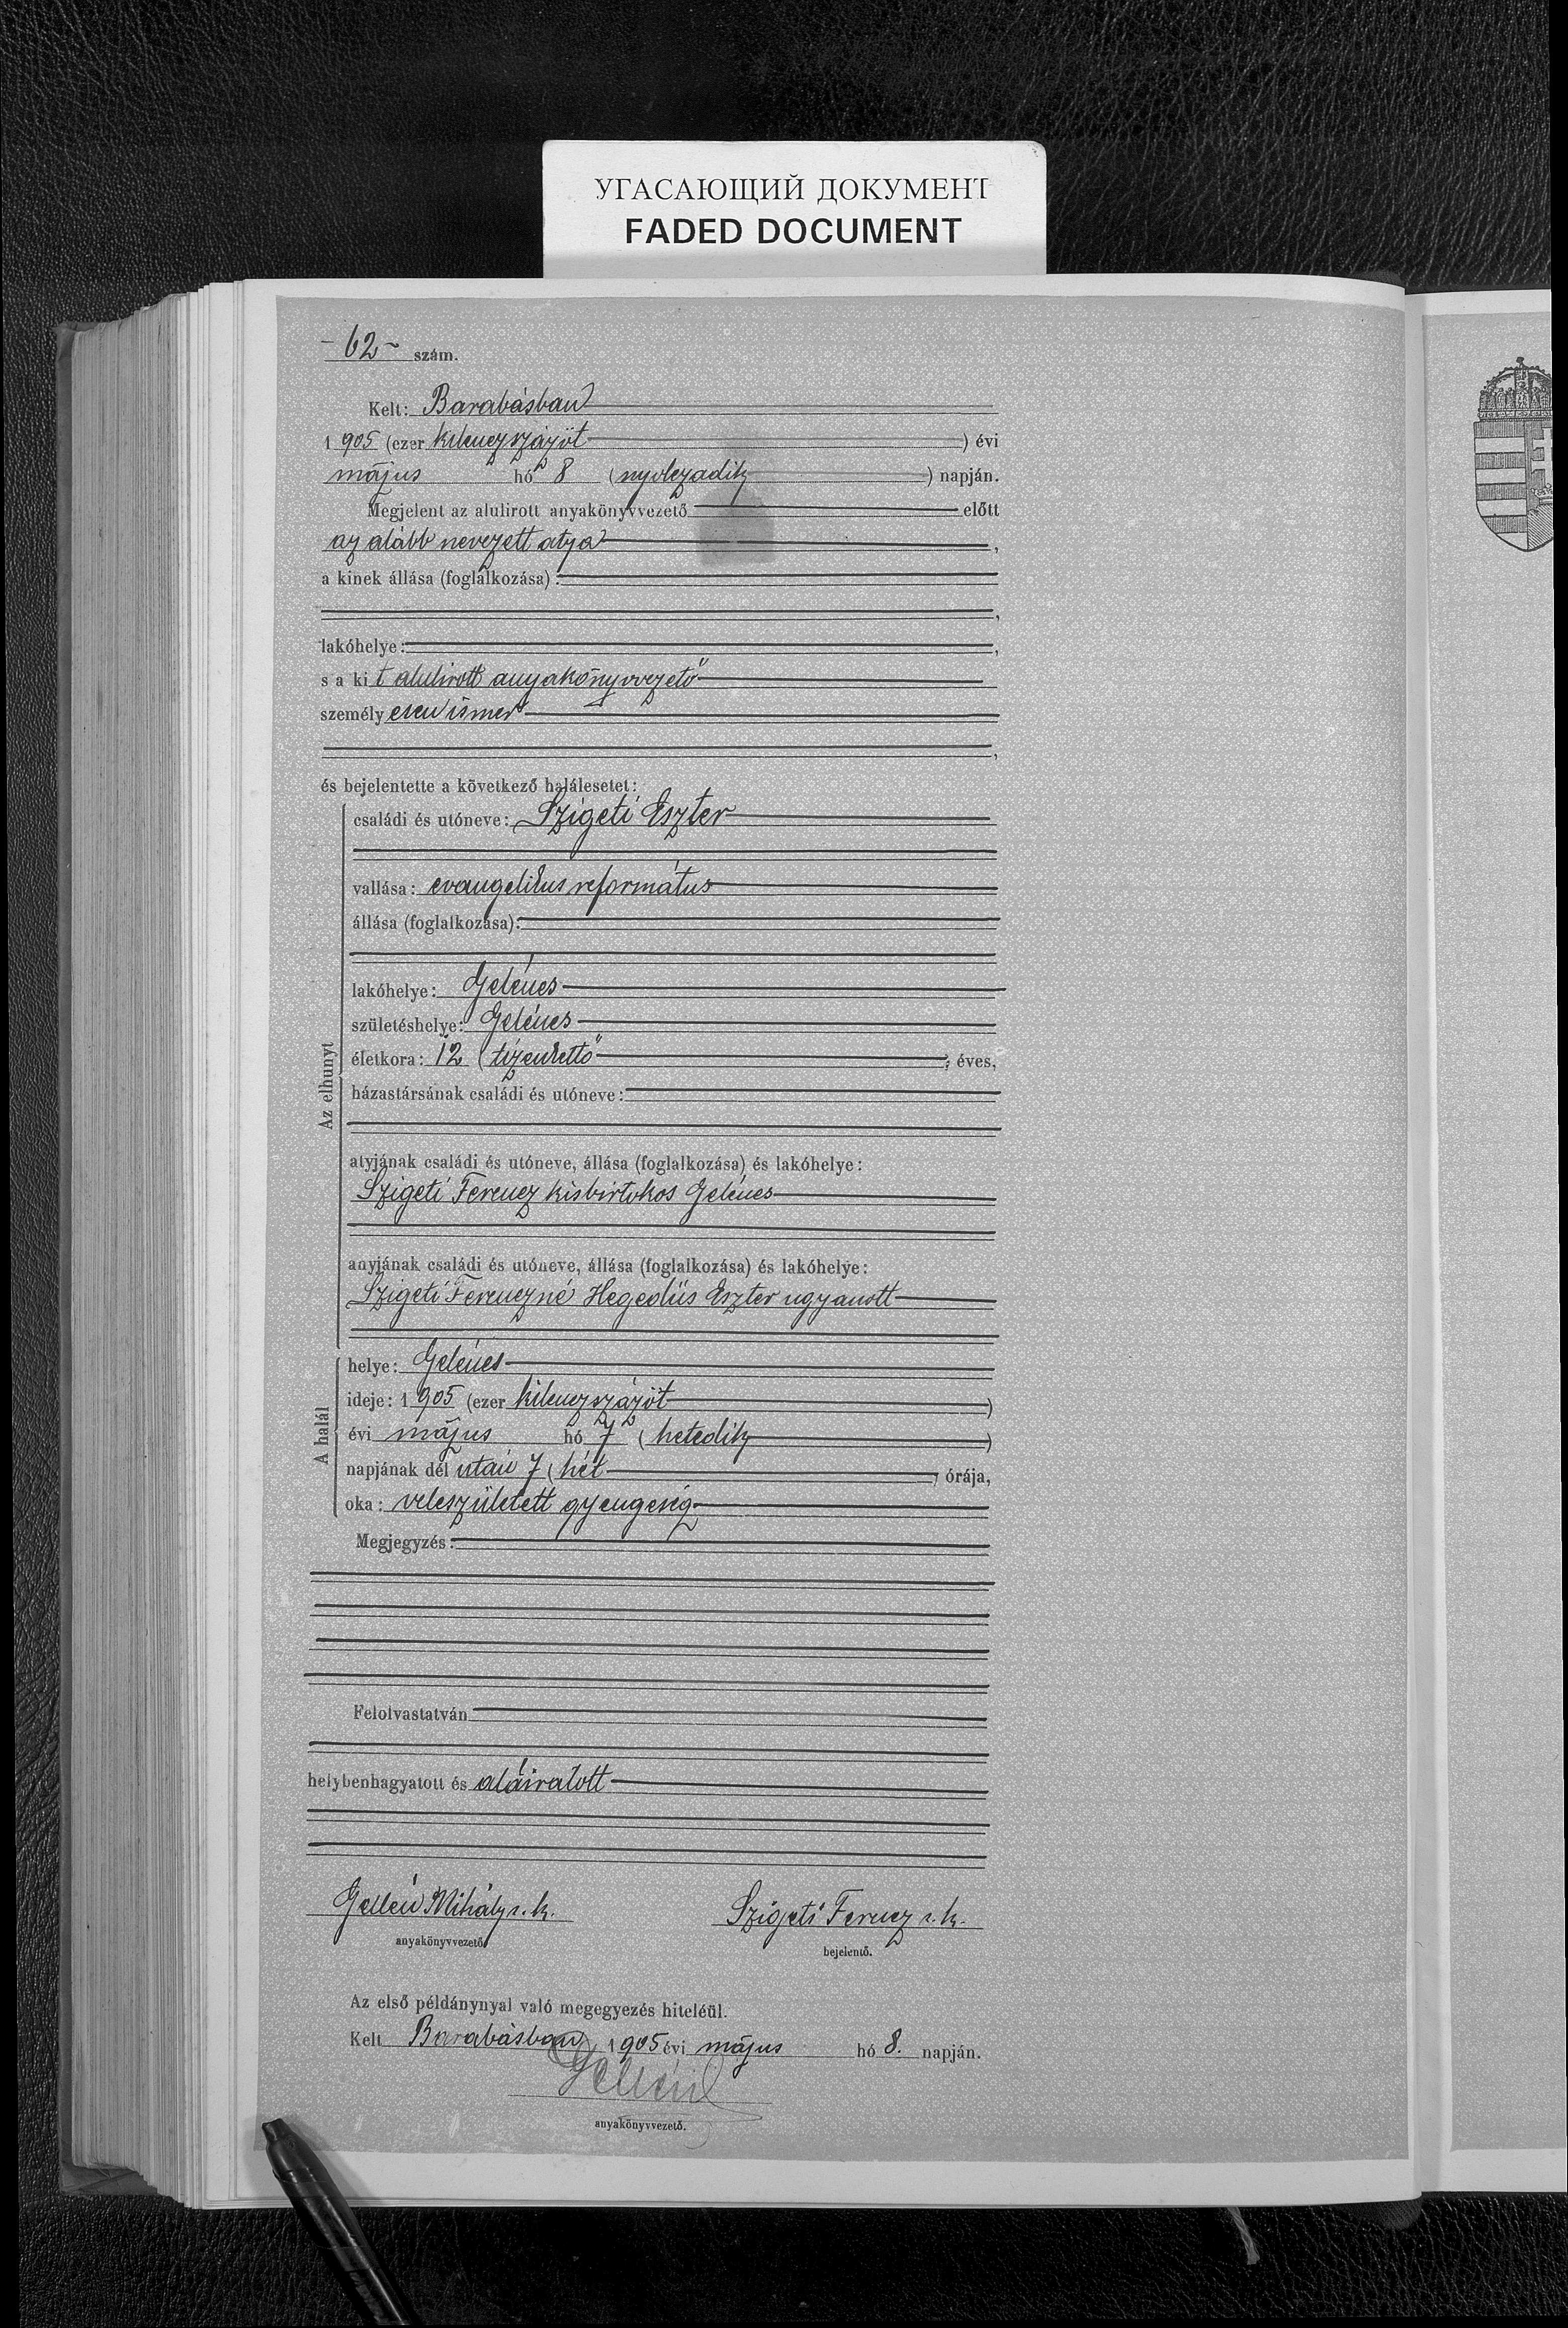 УГАСАЮЩИЙ ДОКУМЕНТ
FADED DOCUMENT
- 62 - szám.
Kelt: Barabásban
1 905 (ezer kilenczszázöt ) évi
május hó 8 (nyolczadik ) napján.
Megjelent az alulirott anyakönyvvezető előtt
az alább nevezett atya ,
a kinek állása (foglalkozása):
,
lakóhelye: ,
s a ki t alulirott anyakönyvvezető
személy esen ismer
,
és bejelentette a következő halálesetet:
családi és utóneve: Szigeti Eszter
vallása: evangelikus református
állása (foglalkozása):
lakóhelye: Gelénes
születéshelye: Gelénes
Az elhunyt
életkora: 12 (tizenkettő ) éves,
házastársának családi és utóneve:
atyjának családi és utóneve, állása (foglalkozása) és lakóhelye:
Szigeti Ferencz kisbirtokos Gelénes
anyjának családi és utóneve, állása (foglalkozása) és lakóhelye:
Szigeti Ferenczné Hegedüs Eszter ugyanott
A halál
helye: Gelénes
ideje: 1 905 (ezer kilenczszázöt )
évi május hó 7 (hetedik )
napjának dél után 7 (hét ) órája,
oka: veleszületett gyengeség
Megjegyzés:
Felolvastatván
helybenhagyatott és aláiratott
Gellén Mihály s. k.
anyakönyvvezető
Szigeti Ferencz s. k.
bejelentő.
Az első példánynyal való megegyezés hiteléül.
Kelt Barabásban 1 905 évi május hó 8. napján.
Gellén
anyakönyvvezető.